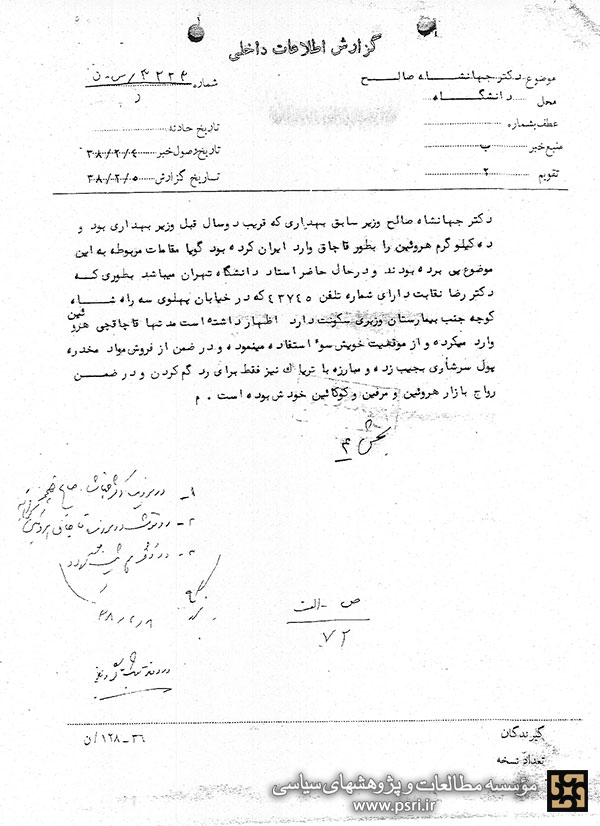 گزارش اطلاعات داخلی
موضوع دکتر جهانشاه صالح
محل دانشگاه
عطف بشماره
منبع خبر ب
تقویم ۲
شماره ۳۲۲۴/س-ن
ر
تاریخ حادثه
تاریخ وصول خبر ۳۸/۲/۴
تاریخ گزارش ۳۸/۲/۵
دکتر جهانشاه صالح وزیر سابق بهداری که قریب دوسال قبل وزیر بهداری بود و
ده کیلو گرم هروئین را بطور قاچاق وارد ایران کرده بود گویا مقامات مربوطه به این
موضوع پی برده بودند و درحال حاضر استاد دانشگاه تهران میباشد بطوری که
دکتر رضا نقابت دارای شماره تلفن ۴۳۷۴۵ که در خیابان پهلوی سه راه شاه
کوچه جنب بیمارستان وزیری سکونت دارد اظهار داشته است مدتها قاچاقچی هروئین
وارد میکرده و از موقعیت خویش سوء استفاده مینموده و در ضمن از فروش مواد مخدره
پول سرشاری بجیب زده و مبارزه با تریاک نیز فقط برای رد گم کردن و در ضمن
رواج بازار هروئین و مرفین و کوکائین خودش بوده است . م
بخش ۴
۱-
۲-
۳-
۳۸/۲/۸
ص - الف
۷۲
گیرندگان
تعداد نسخه
۳۶-۱۲۸/ن
مؤسسه مطالعات و پژوهشهای سیاسی
www.psri.ir